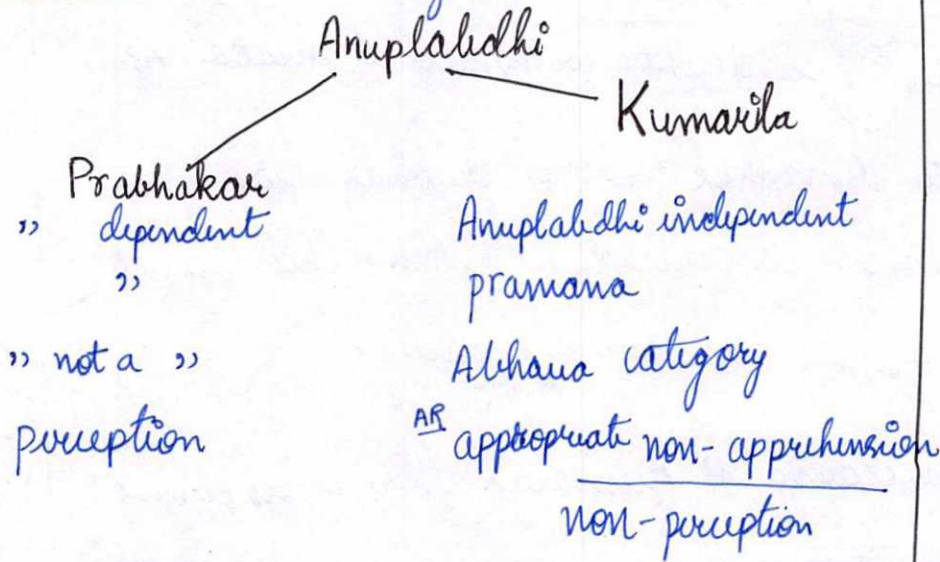 Anuplabdhi
Kumarila
Prabhakar
" dependent
"
" not a "
perception
Anuplabdhi independent
pramana
Abhava category
AR appropriate non-apprehension
non-perception